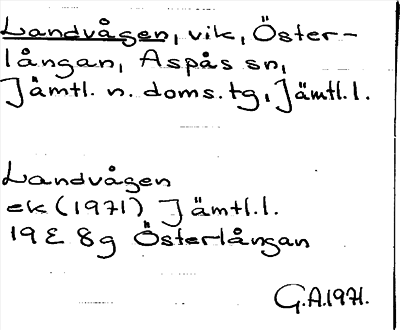 Landvågen, vik, Öster-
långan, Aspås sn,
Jämtl. n. doms. tg, Jämtl. l.
Landvågen
ek (1971) Jämtl. l.
19 E 8g Österlångan
G.A. 1971.